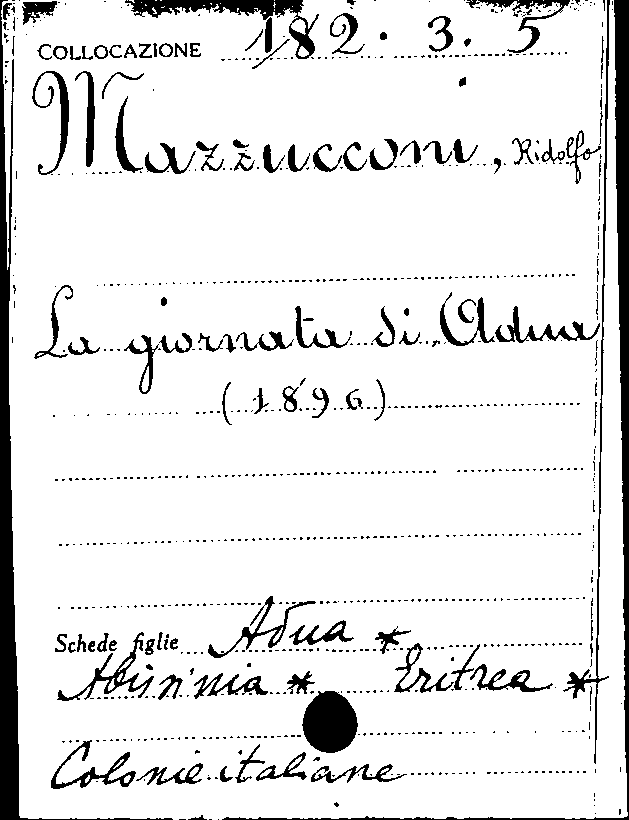 COLLOCAZIONE 182. 3. 5
Mazzucconi, Ridolfo
La giornata di Adua
(1896)
Schede figlie Adua *
Abissinia * Eritrea *
Colonie italiane